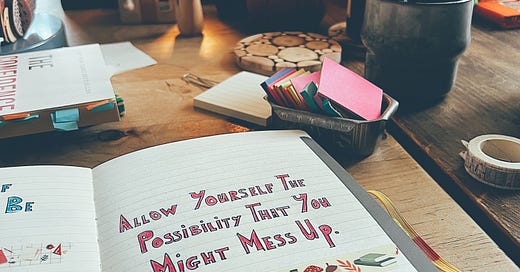 THE
CONFIDENCE
F
BE
ALLOW YOURSELF THE
POSSIBILITY THAT YOU
MIGHT MESS UP.